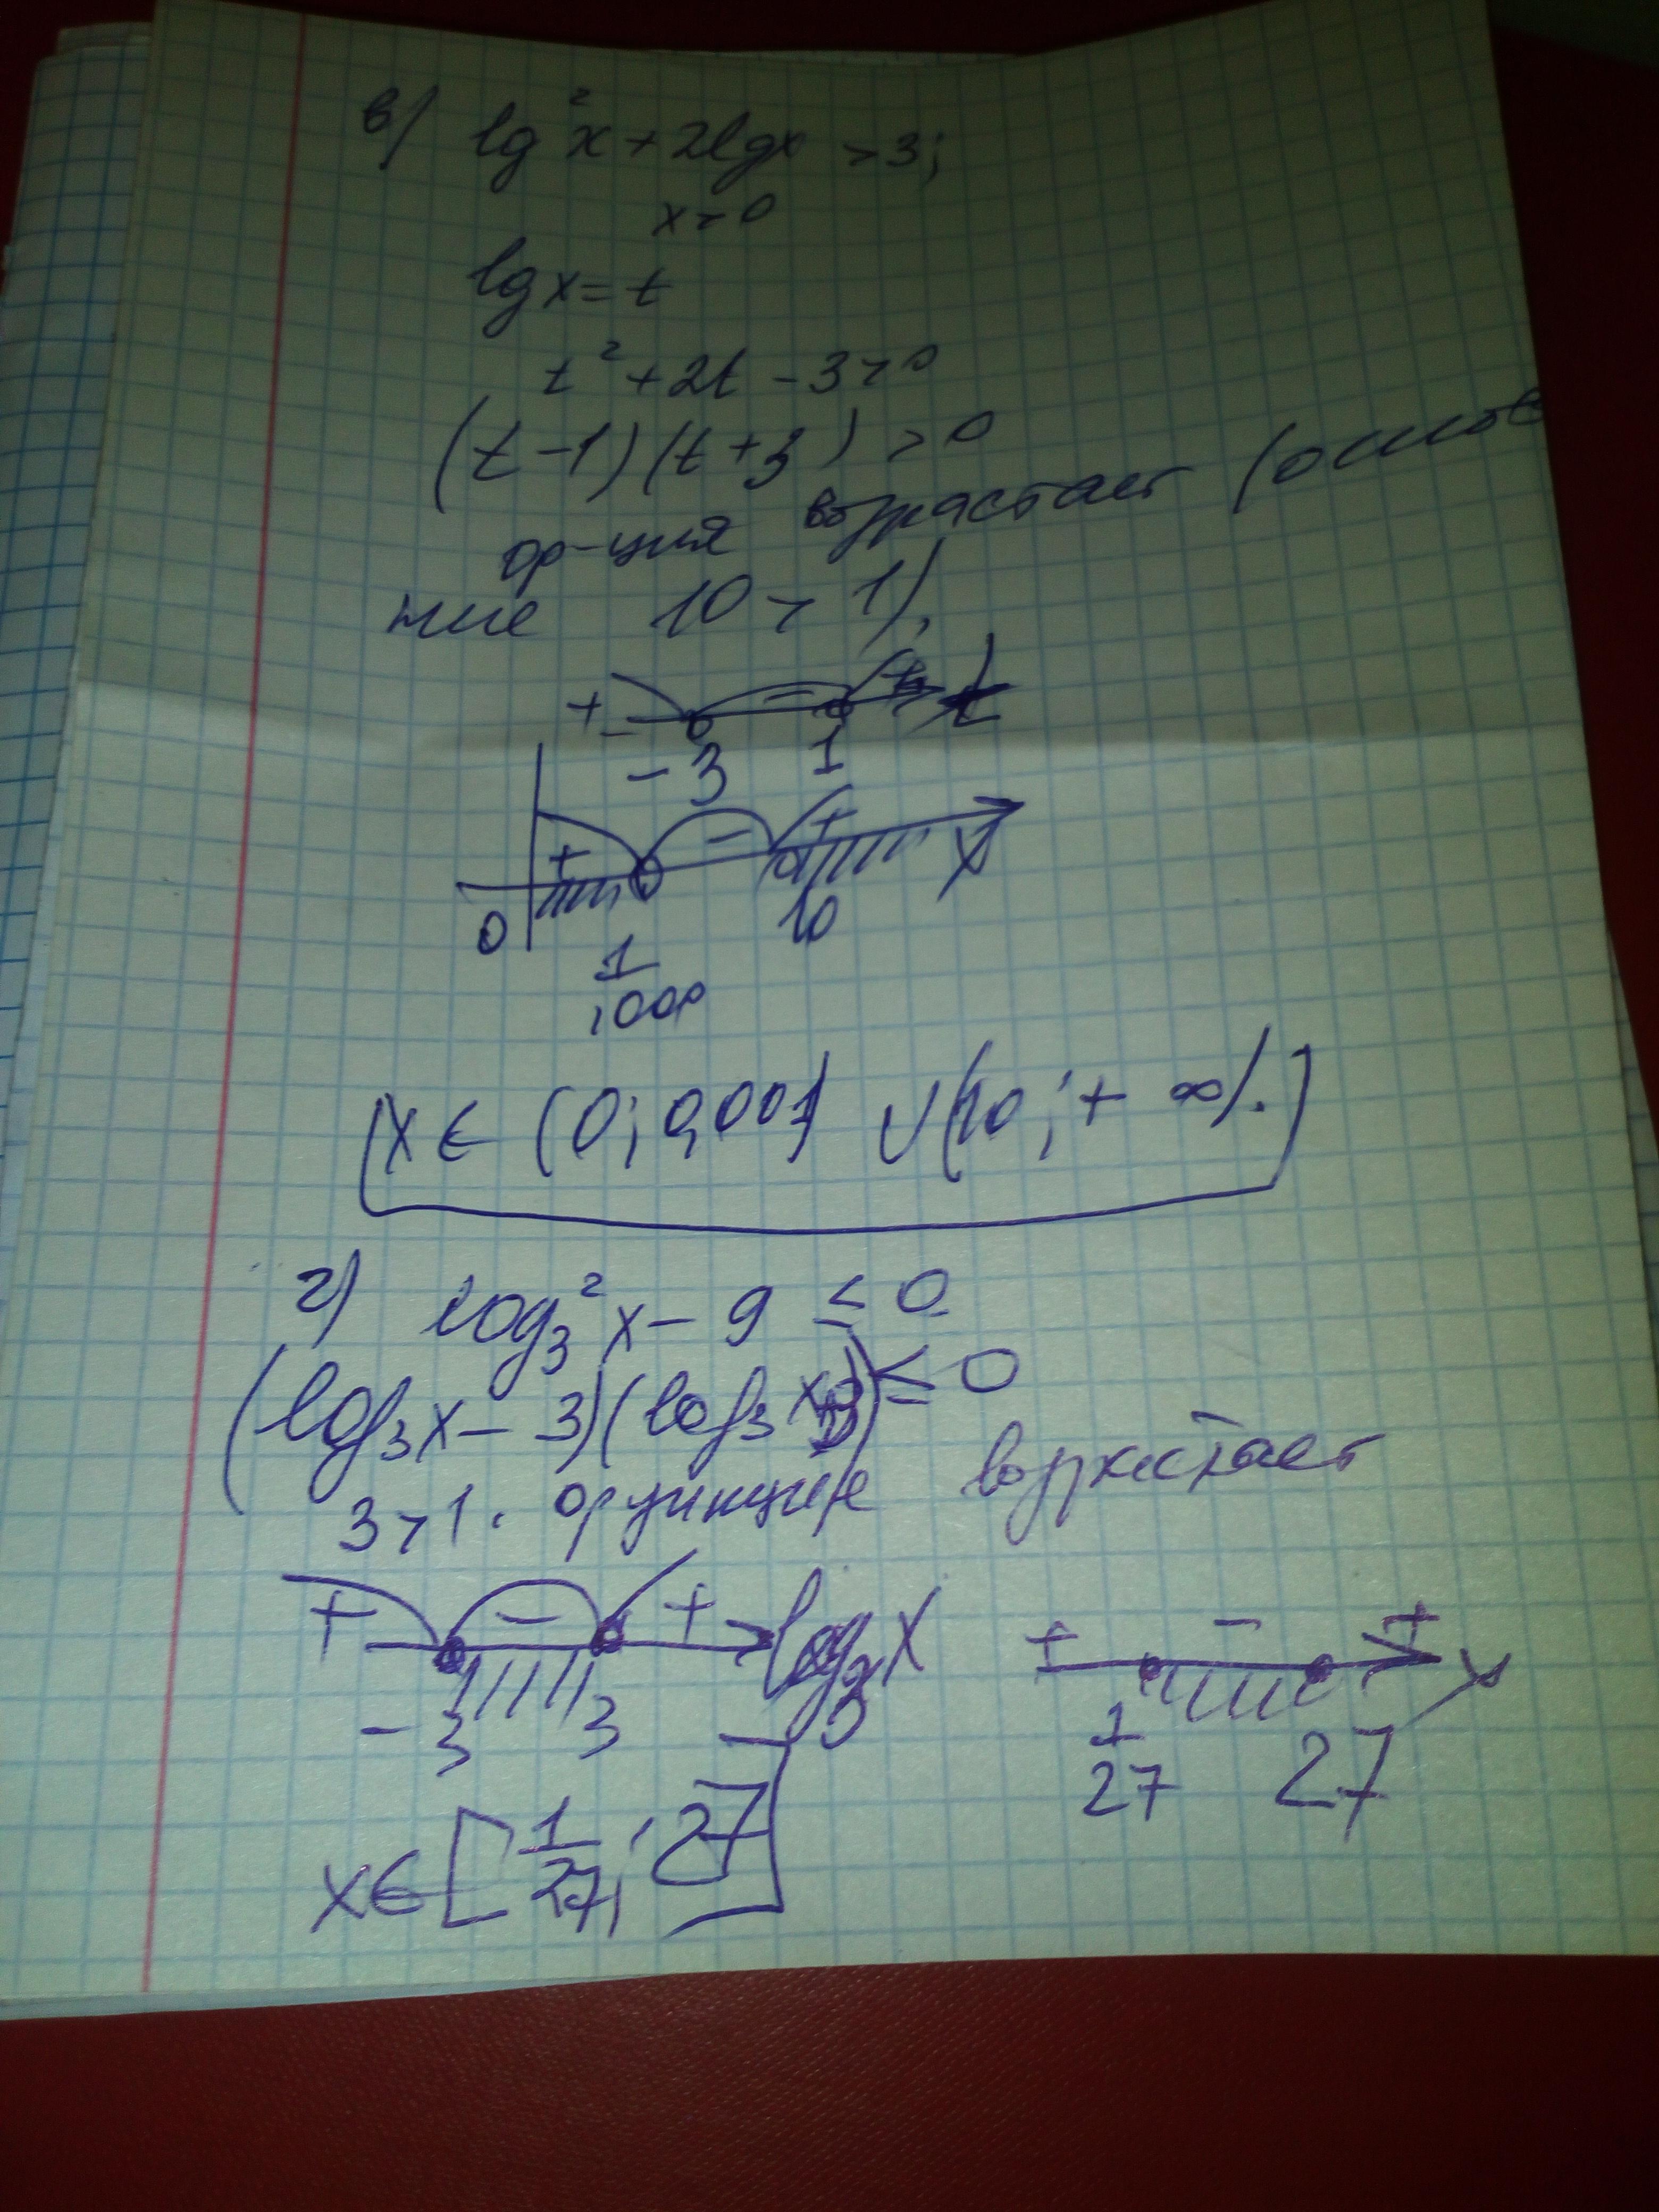 в) lg²x + 2lgx > 3;
x > 0
lgx = t
t² + 2t - 3 > 0
(t - 1)(t + 3) > 0
ф-ция возрастает (основа
ние 10 > 1).
+ - + t
-3 1
+ - + x
0 1/1000 10
x ∈ (0; 0,001) ∪ (10; + ∞).
г) log₃²x - 9 ≤ 0
(log₃x - 3)(log₃x+3) ≤ 0
3 > 1. функция возрастает
+ - + log₃x + - + x
-3 3 1/27 27
x ∈ [1/27; 27]